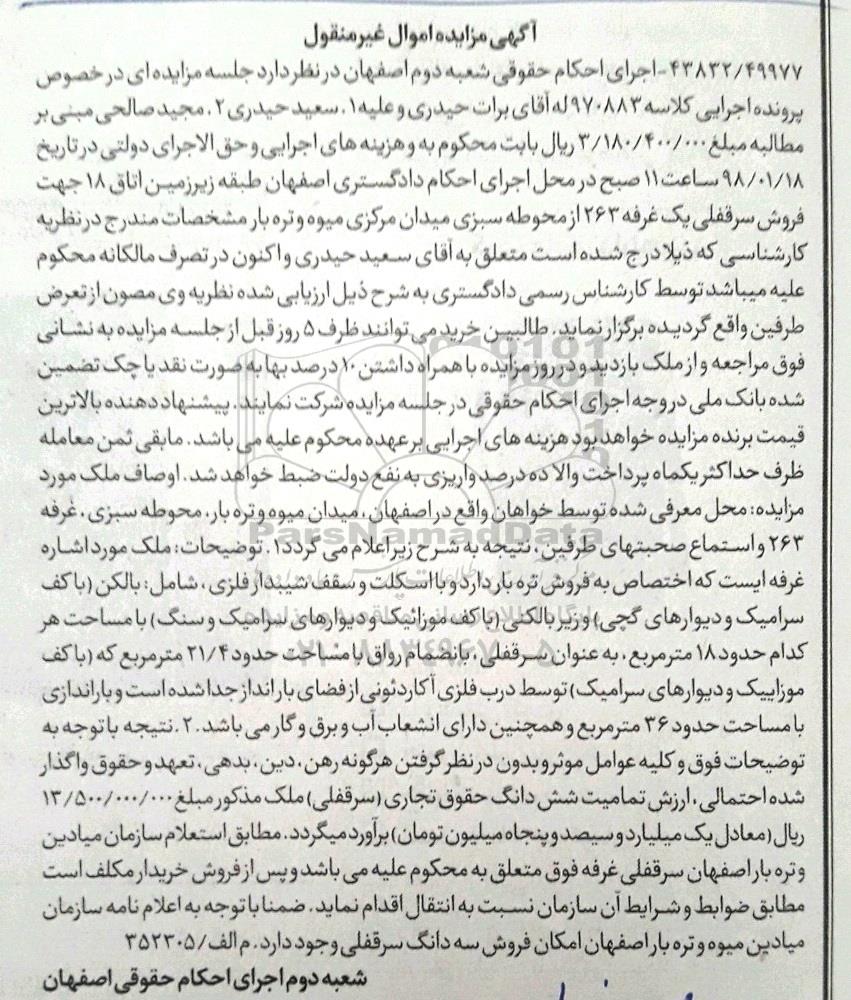 آگهی مزایده اموال غیرمنقول
۴۳۸۳۲/۴۹۹۷۷-اجرای احکام حقوقی شعبه دوم اصفهان در نظر دارد جلسه مزایده ای در خصوص
پرونده اجرایی کلاسه ۹۷۰۸۸۳ له آقای برات حیدری و علیه ۱. سعید حیدری ۲. مجید صالحی مبنی بر
مطالبه مبلغ ۳/۱۸۰/۴۰۰/۰۰۰ ریال بابت محکوم به و هزینه های اجرایی و حق الاجرای دولتی در تاریخ
۹۸/۰۱/۱۸ ساعت ۱۱ صبح در محل اجرای احکام دادگستری اصفهان طبقه زیرزمین اتاق ۱۸ جهت
فروش سرقفلی یک غرفه ۲۶۳ از محوطه سبزی میدان مرکزی میوه و تره بار مشخصات مندرج در نظریه
کارشناسی که ذیلا درج شده است متعلق به آقای سعید حیدری و اکنون در تصرف مالکانه محکوم
علیه میباشد توسط کارشناس رسمی دادگستری به شرح ذیل ارزیابی شده نظریه وی مصون از تعرض
طرفین واقع گردیده برگزار نماید. طالبین خرید می توانند ظرف ۵ روز قبل از جلسه مزایده به نشانی
فوق مراجعه و از ملک بازدید و در روز مزایده با همراه داشتن ۱۰ درصد بها به صورت نقد یا چک تضمین
شده بانک ملی در وجه اجرای احکام حقوقی در جلسه مزایده شرکت نمایند. پیشنهاد دهنده بالاترین
قیمت برنده مزایده خواهد بود هزینه های اجرایی بر عهده محکوم علیه می باشد. مابقی ثمن معامله
ظرف حداکثر یکماه پرداخت والا ده درصد واریزی به نفع دولت ضبط خواهد شد. اوصاف ملک مورد
مزایده: محل معرفی شده توسط خواهان واقع در اصفهان، میدان میوه و تره بار، محوطه سبزی، غرفه
۲۶۳ و استماع صحبتهای طرفین، نتیجه به شرح زیر اعلام می گردد ۱. توضیحات: ملک مورد اشاره
غرفه ایست که اختصاص به فروش تره بار دارد و با اسکلت و سقف شیبدار فلزی، شامل: بالکن (با کف
سرامیک و دیوارهای گچی) و زیر بالکنی (با کف موزائیک و دیوارهای سرامیک و سنگ) با مساحت هر
کدام حدود ۱۸ مترمربع، به عنوان سرقفلی، بانضمام رواق با مساحت حدود ۲۱/۴ مترمربع که (با کف
موزاییک و دیوارهای سرامیک) توسط درب فلزی آکاردئونی از فضای بارانداز جدا شده است و باراندازی
با مساحت حدود ۳۶ مترمربع و همچنین دارای انشعاب آب و برق و گار می باشد. ۲. نتیجه با توجه به
توضیحات فوق و کلیه عوامل موثر و بدون در نظر گرفتن هرگونه رهن، دین، بدهی، تعهد و حقوق واگذار
شده احتمالی، ارزش تمامیت شش دانگ حقوق تجاری (سرقفلی) ملک مذکور مبلغ ۱۳/۵۰۰/۰۰۰/۰۰۰
ریال (معادل یک میلیارد و سیصد و پنجاه میلیون تومان) برآورد میگردد. مطابق استعلام سازمان میادین
وتره بار اصفهان سرقفلی غرفه فوق متعلق به محکوم علیه می باشد و پس از فروش خریدار مکلف است
مطابق ضوابط و شرایط آن سازمان نسبت به انتقال اقدام نماید. ضمنا با توجه به اعلام نامه سازمان
میادین میوه و تره بار اصفهان امکان فروش سه دانگ سرقفلی وجود دارد. م الف/۳۵۲۳۰۵
شعبه دوم اجرای احکام حقوقی اصفهان
ParsNamadData